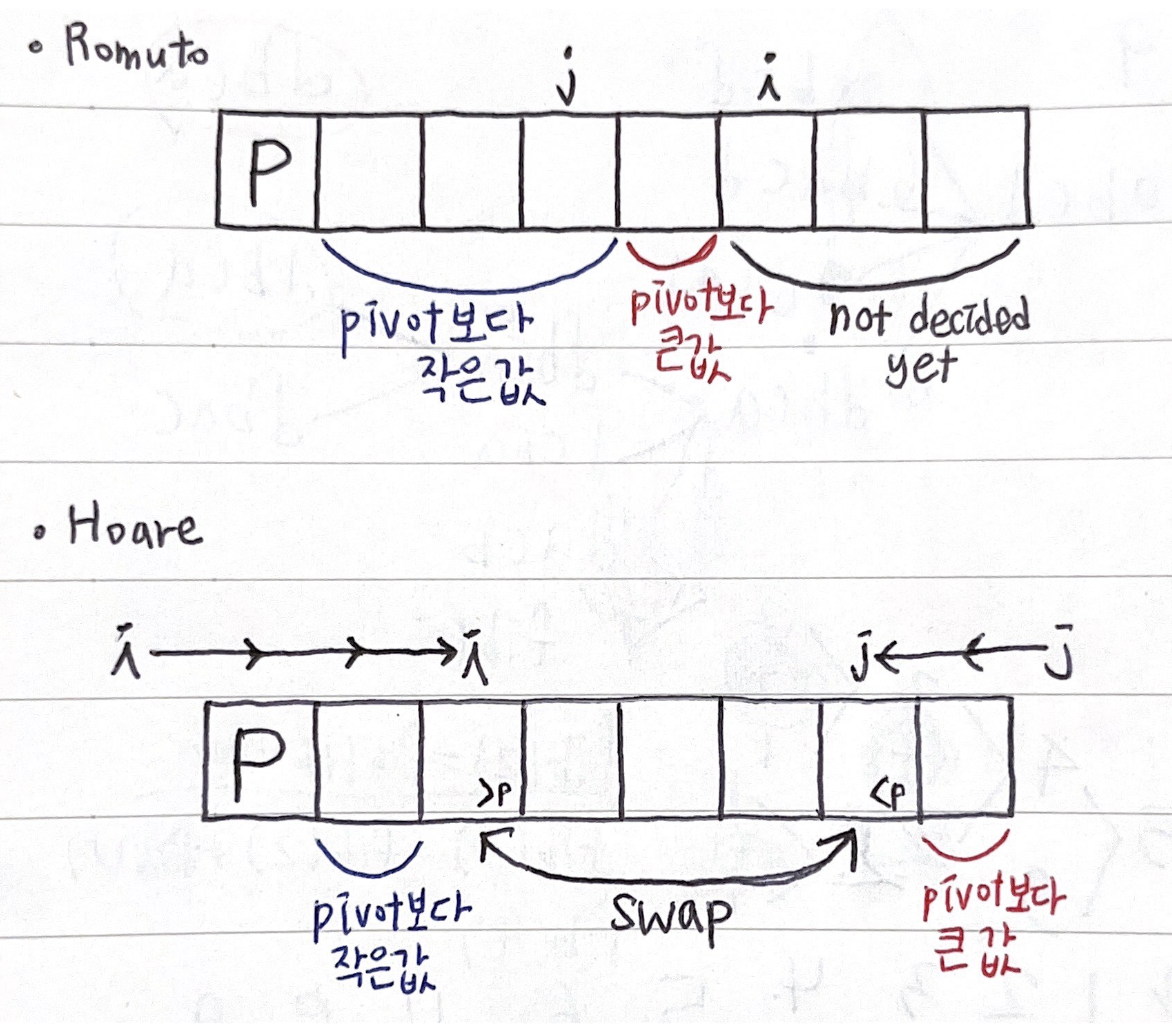 • Romuto
j i
P
pivot보다
작은값
pivot보다
큰값
not decided
yet
• Hoare
i i j j
P >P <P
swap
pivot보다
작은값
pivot보다
큰 값